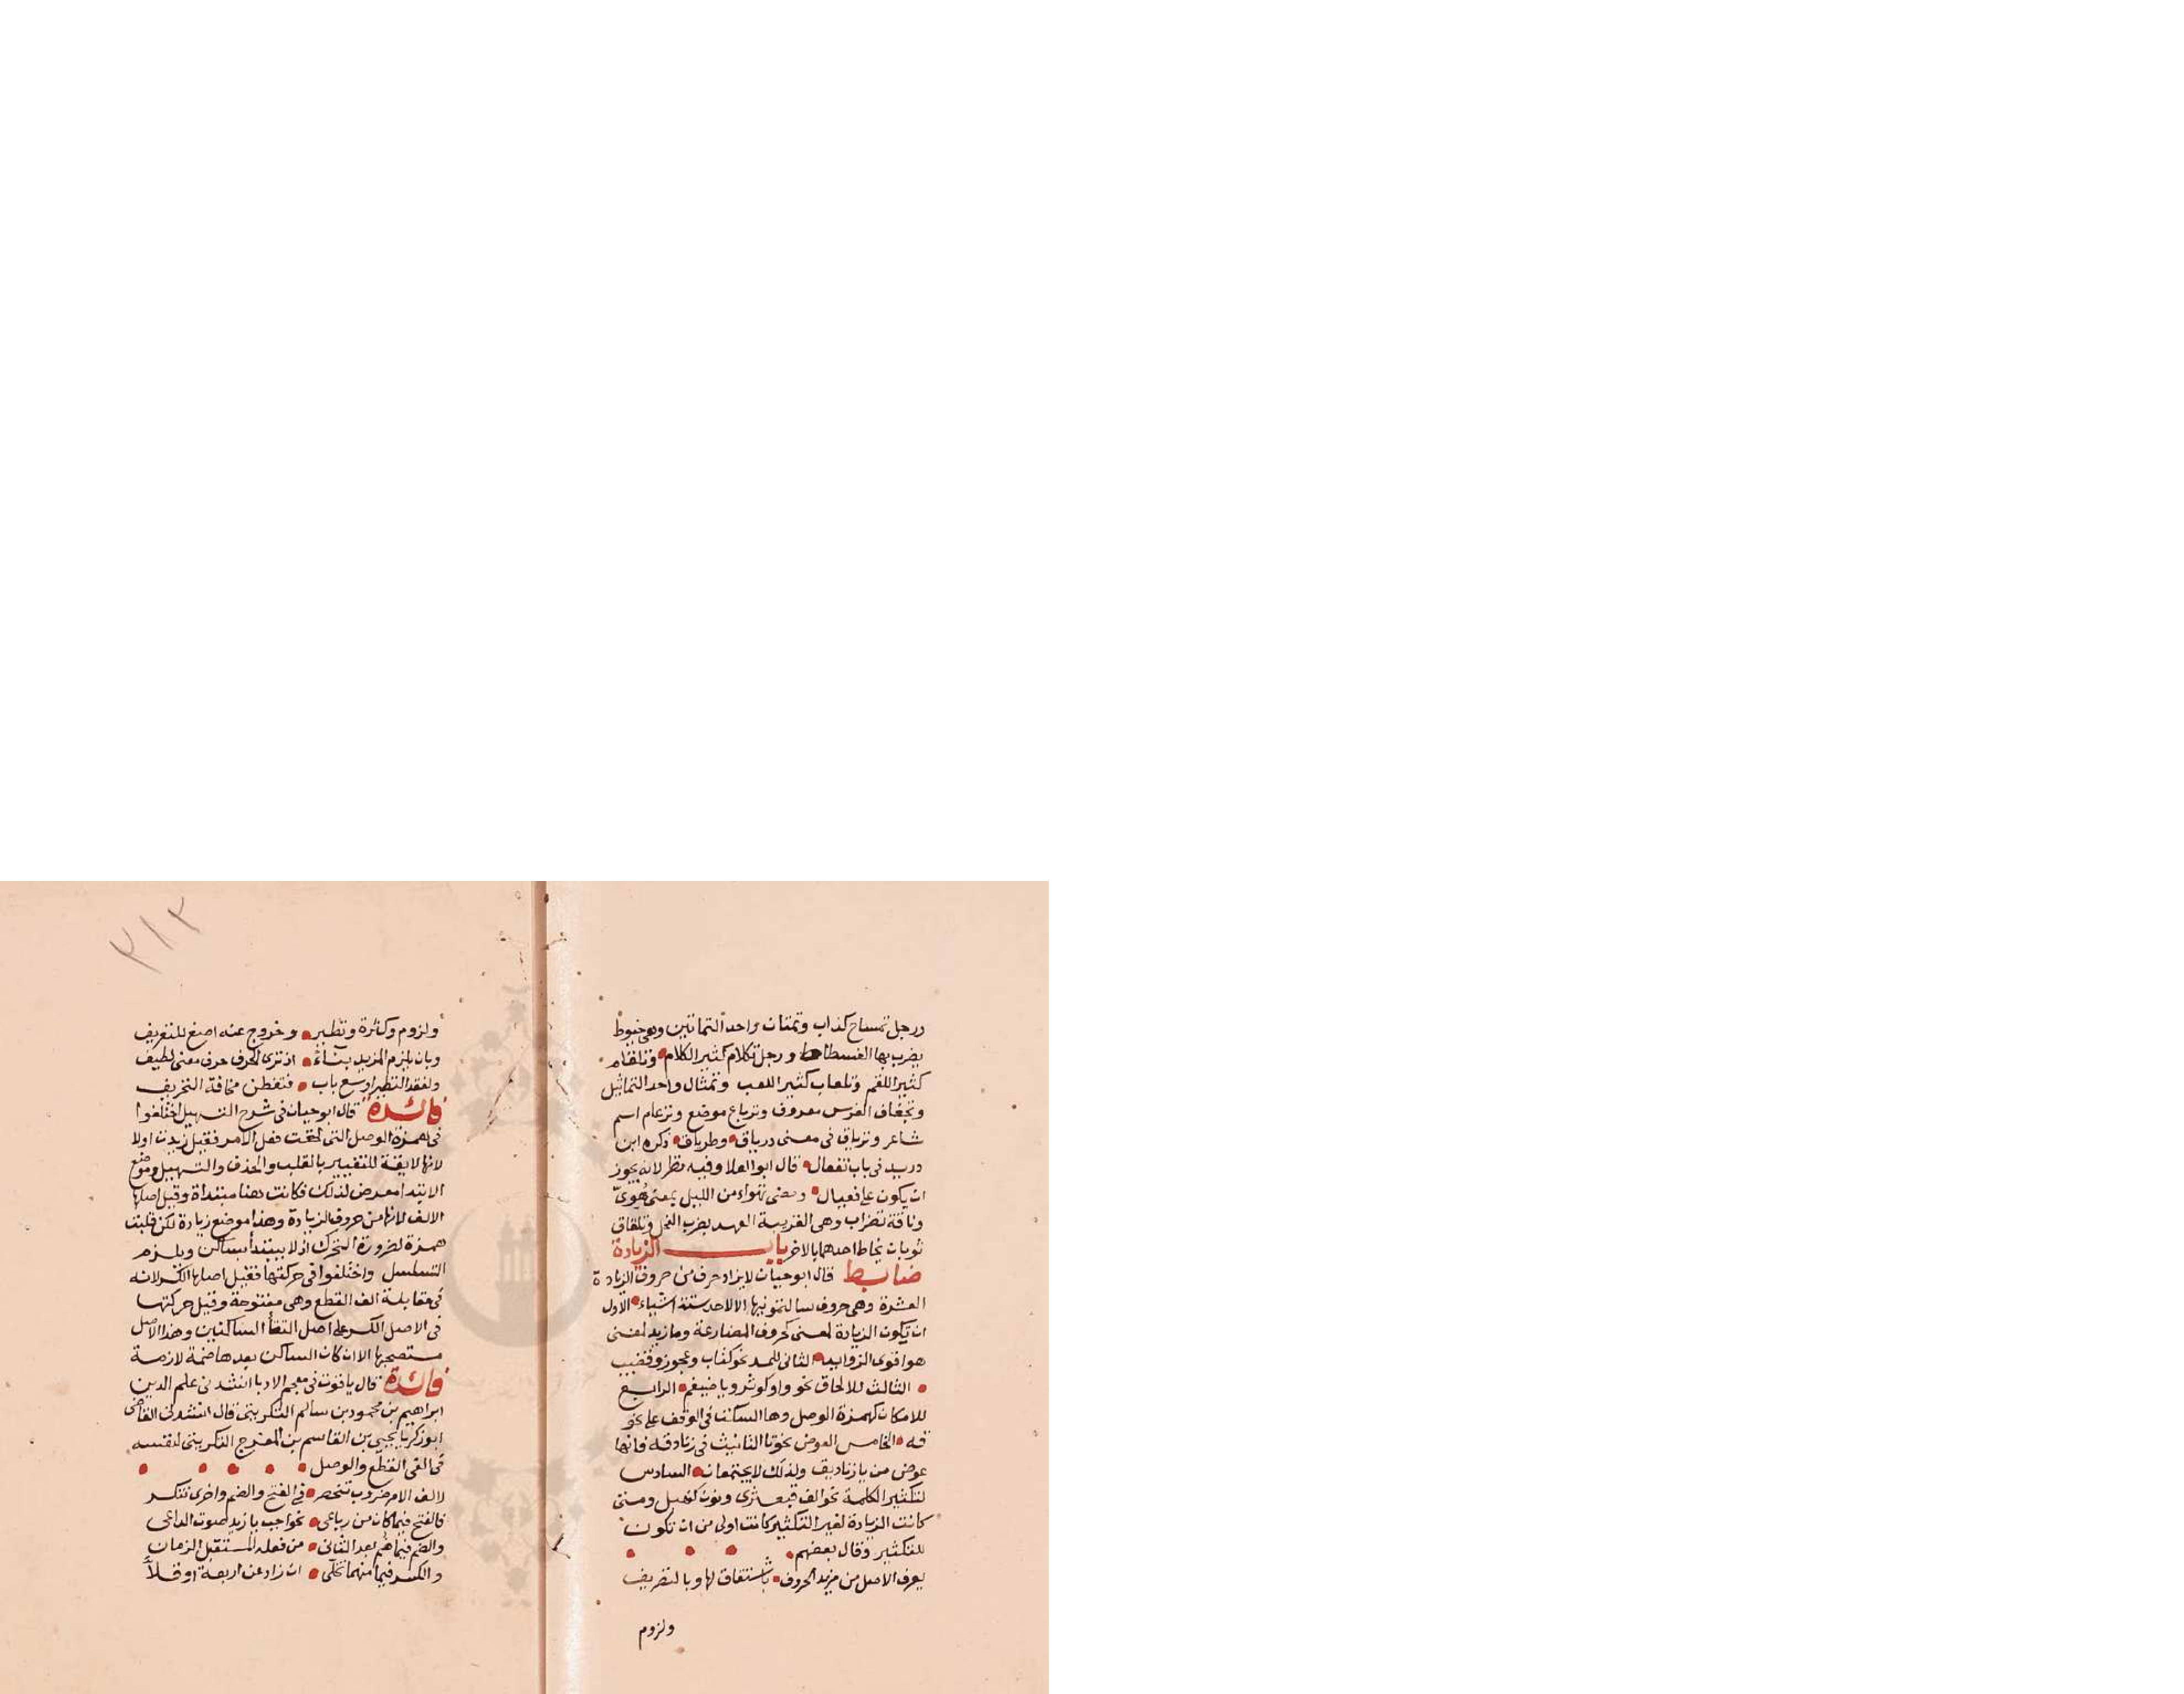 ورجل تمساح كذاب وتمتان واحد التماتين وهي خيوط
يضرب بها الفسطاط ورجل تكلام كثير الكلام وتلقام
كثير اللقم وتلعاب كثير اللعب وتمثال واحد التماثيل
وتجفاف الفرس معروف وترباع موضع وترعام اسم
شاعر وترياق في معنى درياق وطرياق ذكره ابن
دريد في باب تفعال قال ابو العلا وفيه نظر لانه يجوز
ان يكون على فعيال ومضى تهواء من الليل بمعنى هُويّ
وناقة تضراب وهي القريبة العهد بضرب الفحل وتلفاق
ثوبان يخاط احدهما بالاخر باب الزيادة
ضابط قال ابو حيان لا يزاد حرف من حروف الزيادة
العشرة وهي حروف سالتمونيها الا لاحد ستة اشياء الاول
ان تكون الزيادة لمعنى كحروف المضارعة وما زيد لمعنى
هو اقوى الزوايد الثاني للمد نحو كتاب وعجوز وقضيب
الثالث للالحاق نحو واو كوثر ويا ضيغم الرابع
للامكان كهمزة الوصل وها السكت في الوقف على نحو
قه الخامس العوض نحو تا التانيث في زنادقه فانها
عوض من يا زناديق ولذلك لا يجتمعان السادس
لتكثير الكلمة نحو الف قبعثرى ونون كنهبل ومتى
كانت الزيادة لغير التكثير كانت اولى من ان تكون
للتكثير وقال بعضهم
يعرف الاصل من مزيد الحروف باشتقاق لها وبالتصريف
ولزوم
٣١٣
ولزوم وكثرة ونظير وخروج عنه اصغ للتعريف
وبان يلزم المزيد بناءً اذ ترى الحرف حرف معنى لطيف
ولفقد النظير اوسع باب فتفطن مخافة التحريف
فائدة قال ابو حيان في شرح التسهيل اختلفوا
في همزة الوصل التي لحقت فعل الامر فقيل زيدت اولا
لانها لايقة للتغيير بالقلب والحذف والتسهيل وموضع
الابتدا معرض لذلك فكانت هنا مبتداة وقيل اصلها
الالف لانها من حروف الزيادة وهذا موضع زيادة لكن قلبت
همزة لضرورة التحرك اذ لا يبتدأ بساكن ويلزم
التسلسل واختلفوا في حركتها فقيل اصلها الكسر لانه
في مقابلة الف القطع وهي مفتوحة وقيل حركتها
في الاصل الكسر على اصل التقأ الساكنين وهذا الاصل
مستصحبها الا ان كان الساكن بعدها ضمة لازمة
فائدة قال ياقوت في معجم الادبا انشدني علم الدين
ابراهيم بن محمود بن سالم التكريتي قال انشدني القاضي
ابو زكريا يحيى بن القاسم بن المفرج التكريتي لنفسه
في الفي القطع والوصل
لالف الامر ضروب تنحصر في الفتح والضم واخرى تنكسر
فالفتح فيما كان من رباعي نحو اجب يا زيد صوت الداعي
والضم فيما ضم بعد الثاني من فعله المستقبل الزمان
والكسر فيما منهما تخلّى ان زاد عن اربعة او قلاّ